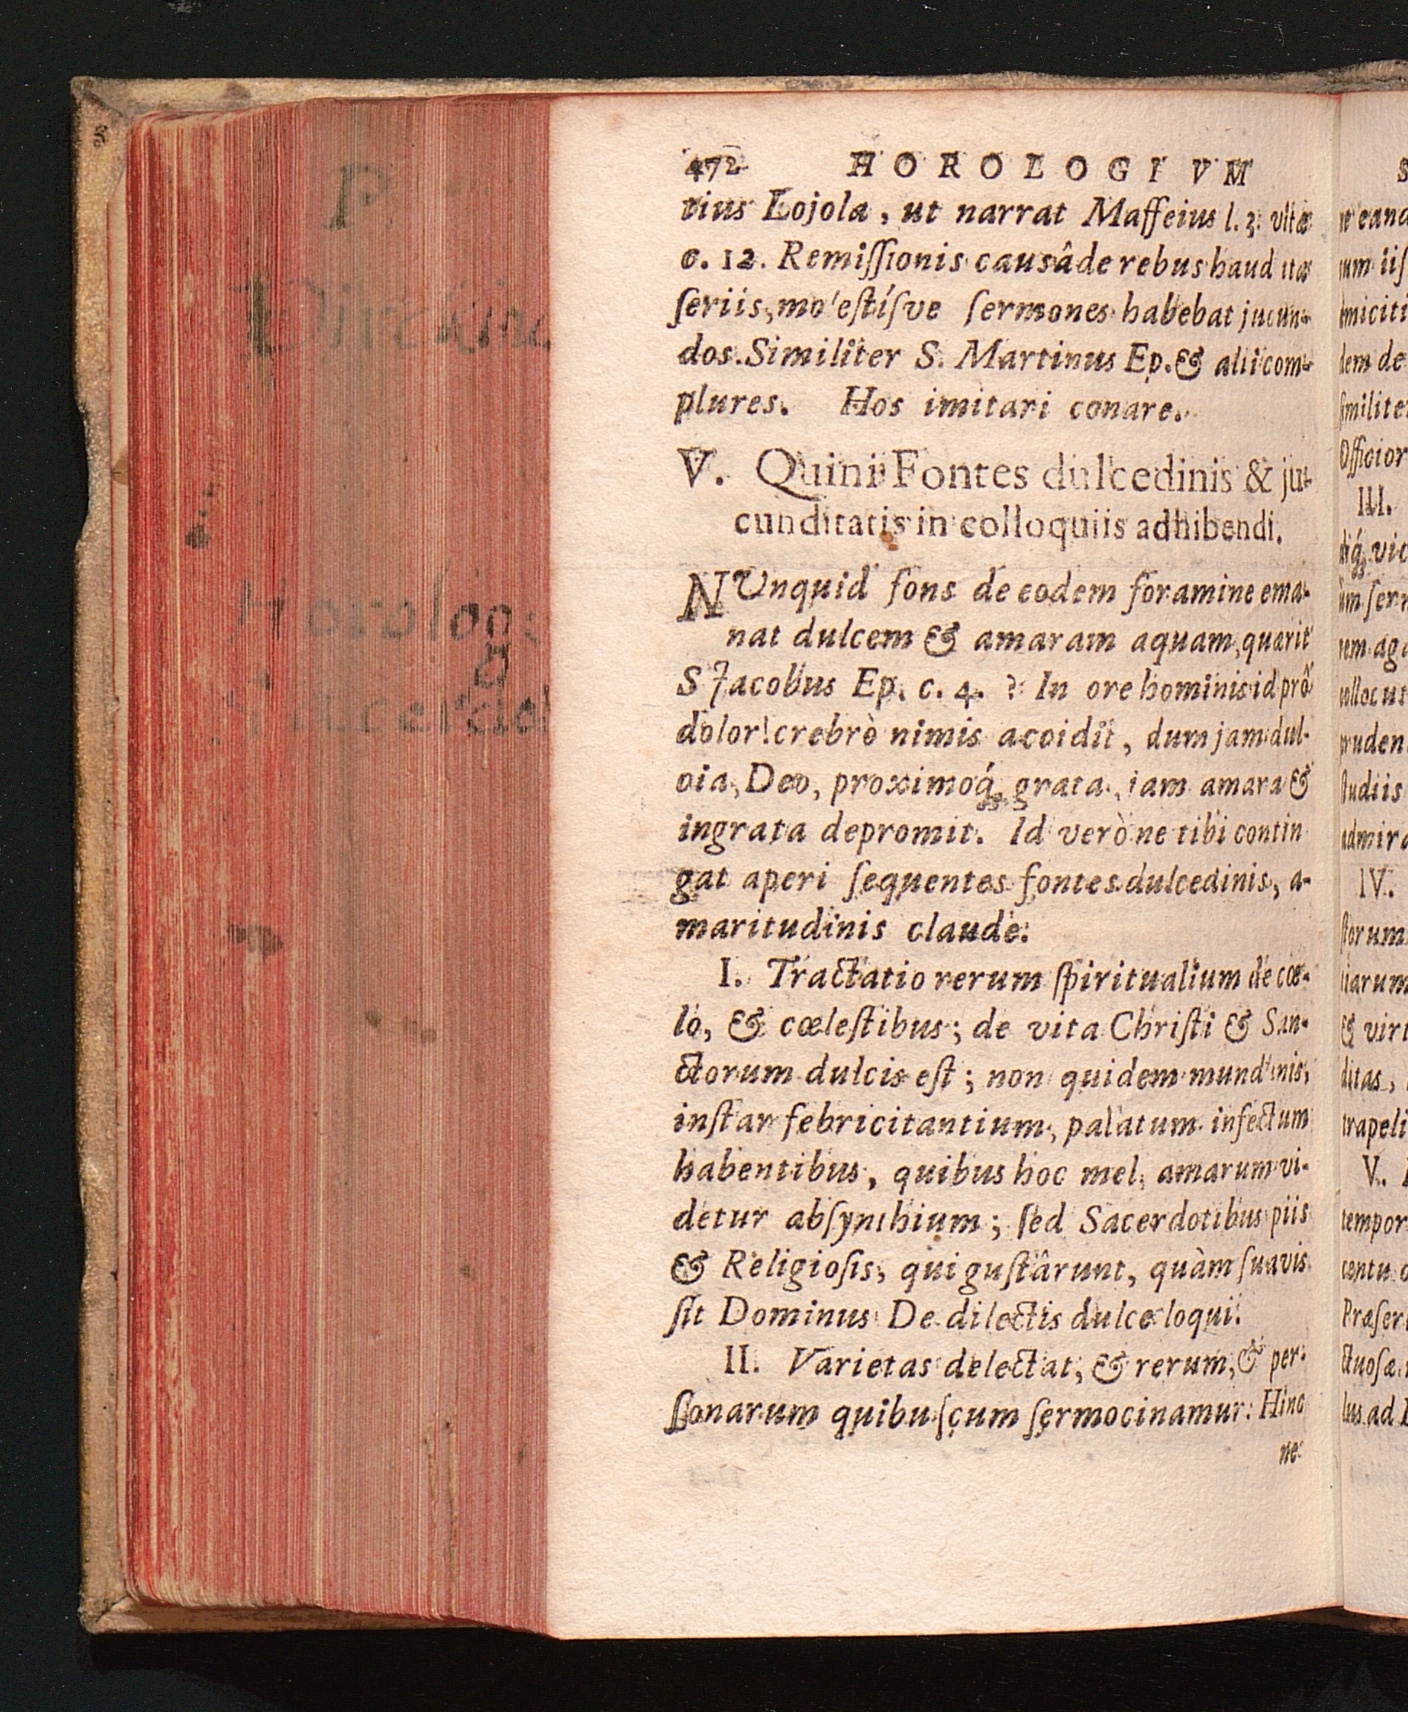 472 HOROLOGIVM
tius Lojola, ut narrat Maffeius l. 3. vitæ
c. 12. Remiſſionis causâ de rebus haud ita
ſeriis, moleſtíſve ſermones habebat jucun-
dos. Similiter S. Martinus Ep. & alii com-
plures. Hos imitari conare.
V. Quini Fontes dulcedinis & ju-
cunditatis in colloquiis adhibendi.
NUnquid fons de eodem foramine ema-
nat dulcem & amaram aquam, quærit
S Jacobus Ep. c. 4. ? In ore hominis id prô
dolor! crebrò nimis accidit, dum jam dul-
cia, Deo, proximoq́; grata, jam amara &
ingrata depromit. Id verò ne tibi contin
gat aperi ſequentes fontes dulcedinis, a-
maritudinis claude.
I. Tractatio rerum ſpiritualium de cœ-
lo, & cœleſtibus; de vita Chriſti & San-
ctorum dulcis eſt; non quidem mundanis,
inſtar febricitantium, palatum infectum
habentibus, quibus hoc mel, amarum vi-
detur abſynthium; ſed Sacerdotibus piis
& Religioſis, qui guſtârunt, quàm ſuavis
ſit Dominus De dilectis dulce loqui.
II. Varietas delectat, & rerum, & per-
ſonarum quibuſcum ſermocinamur: Hinc
ne
Horolog:
eand
um iiſ
miciti
dem de
ſimilite
Officior
III.
vic
um ſer
rem ag
collocut
pruden
ſtudiis
admira
IV.
ſtorum
tiarum
& virt
ditas,
trapeli
V.
tempor
centu
Præſer
ctuoſæ
lus ad